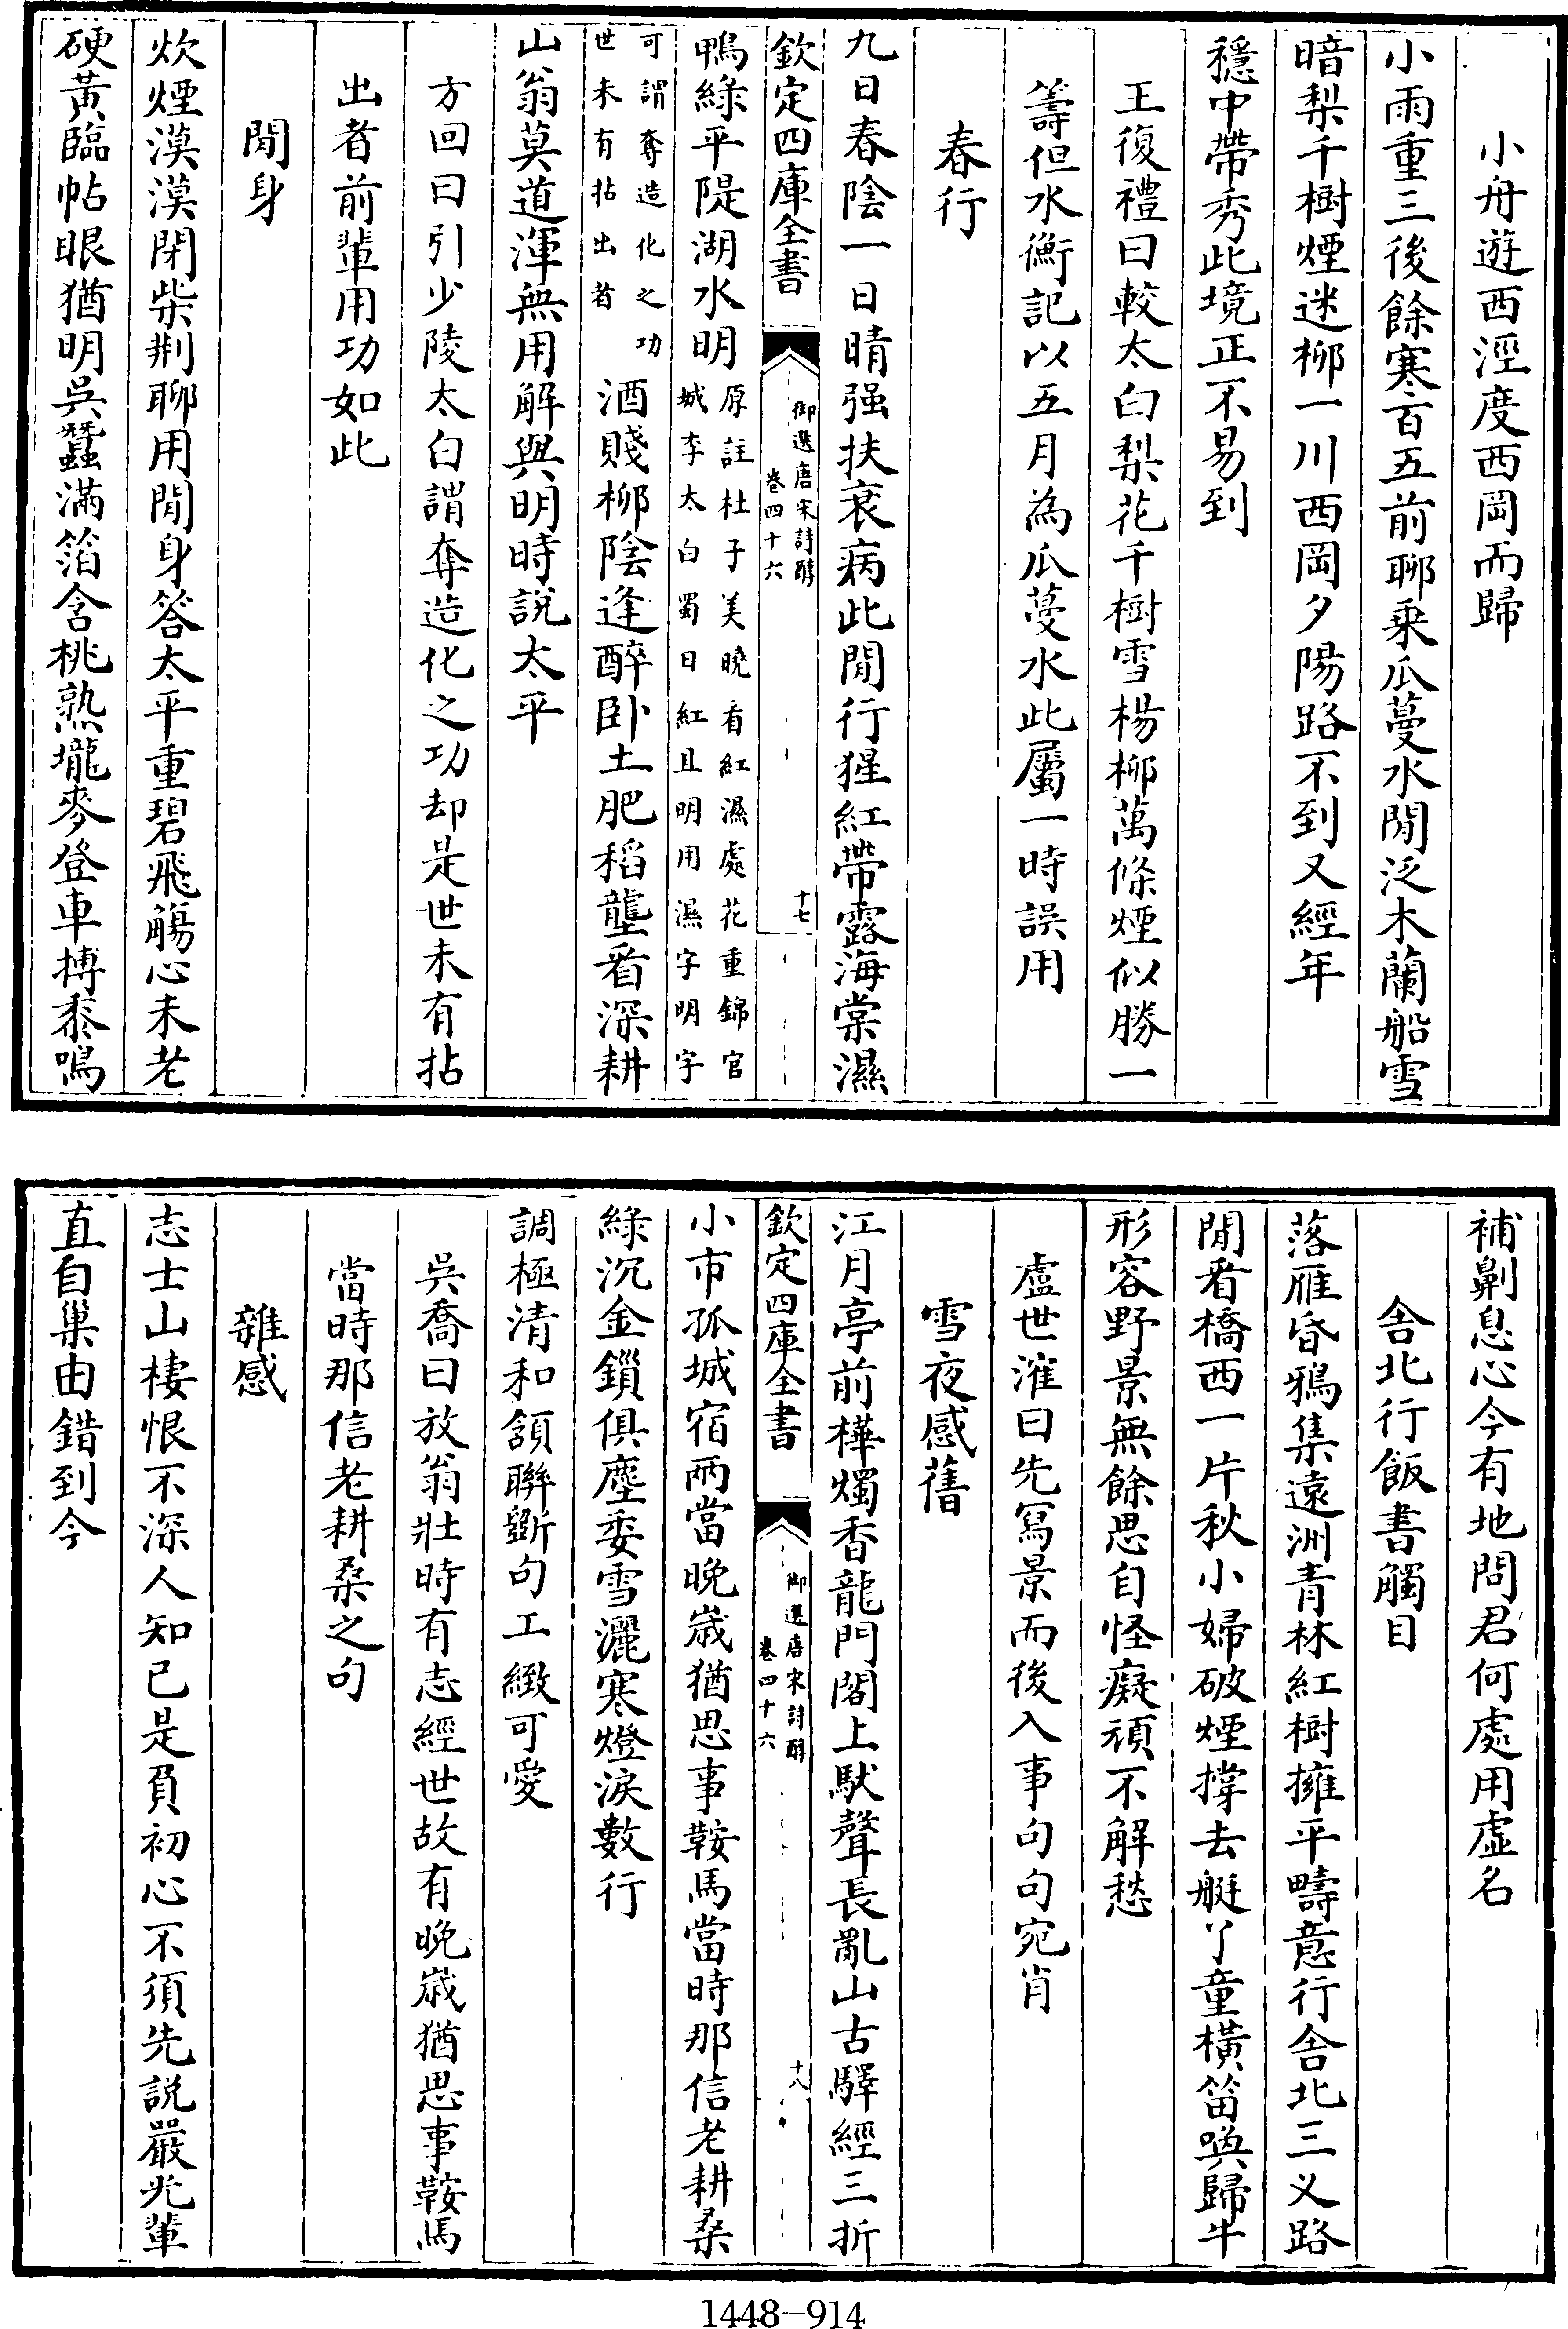 小舟遊西涇度西岡而歸
小雨重三後餘寒百五前聊乗瓜蔓水閒泛木蘭船雪
暗梨千樹煙迷栁一川西岡夕陽路不到又經年
穩中帶秀此境正不易到
王復禮曰較太白梨花千樹雪楊栁萬條煙似勝一
籌但水衡記以五月為瓜蔓水此屬一時誤用
春行
九日春陰一日晴强扶衰病此閒行猩紅帶露海棠濕
欽定四庫全書
御選唐宋詩醇
卷四十六
十七
鴨綠平隄湖水明
原註杜子美曉看紅濕處花重錦官
城李太白蜀日紅且明用濕字明字
可謂奪造化之功
世未有拈出者
酒賤栁陰逢醉卧土肥稻壟看深耕
山翁莫道渾無用解與明時說太平
方回曰引少陵太白謂奪造化之功却是世未有拈
出者前輩用功如此
閒身
炊煙漠漠閉柴荆聊用閒身答太平重碧飛觴心未老
硬黃臨帖眼猶明吳蠶滿箔含桃熟壠麥登車搏黍鳴
補劓息心今有地問君何處用虛名
舎北行飯書觸目
落雁昏鴉集遠洲青林紅樹擁平疇意行舎北三义路
閒看橋西一片秋小婦破煙撐去艇丫童橫笛喚歸牛
形容野景無餘思自怪癡頑不解愁
盧世㴶曰先寫景而後入事句句宛肖
雪夜感舊
江月亭前樺燭香龍門閣上馱聲長亂山古驛經三折
欽定四庫全書
御選唐宋詩醇
卷四十六
十八
小市孤城宿兩當晚歳猶思事鞍馬當時那信老耕桑
綠沉金鎖俱塵委雪灑寒燈淚數行
調極清和頷聯斵句工緻可愛
吳喬曰放翁壯時有志經世故有晚歳猶思事鞍馬
當時那信老耕桑之句
雜感
志士山棲恨不深人知已是負初心不須先説嚴光輩
直自巢由錯到今
1448-914